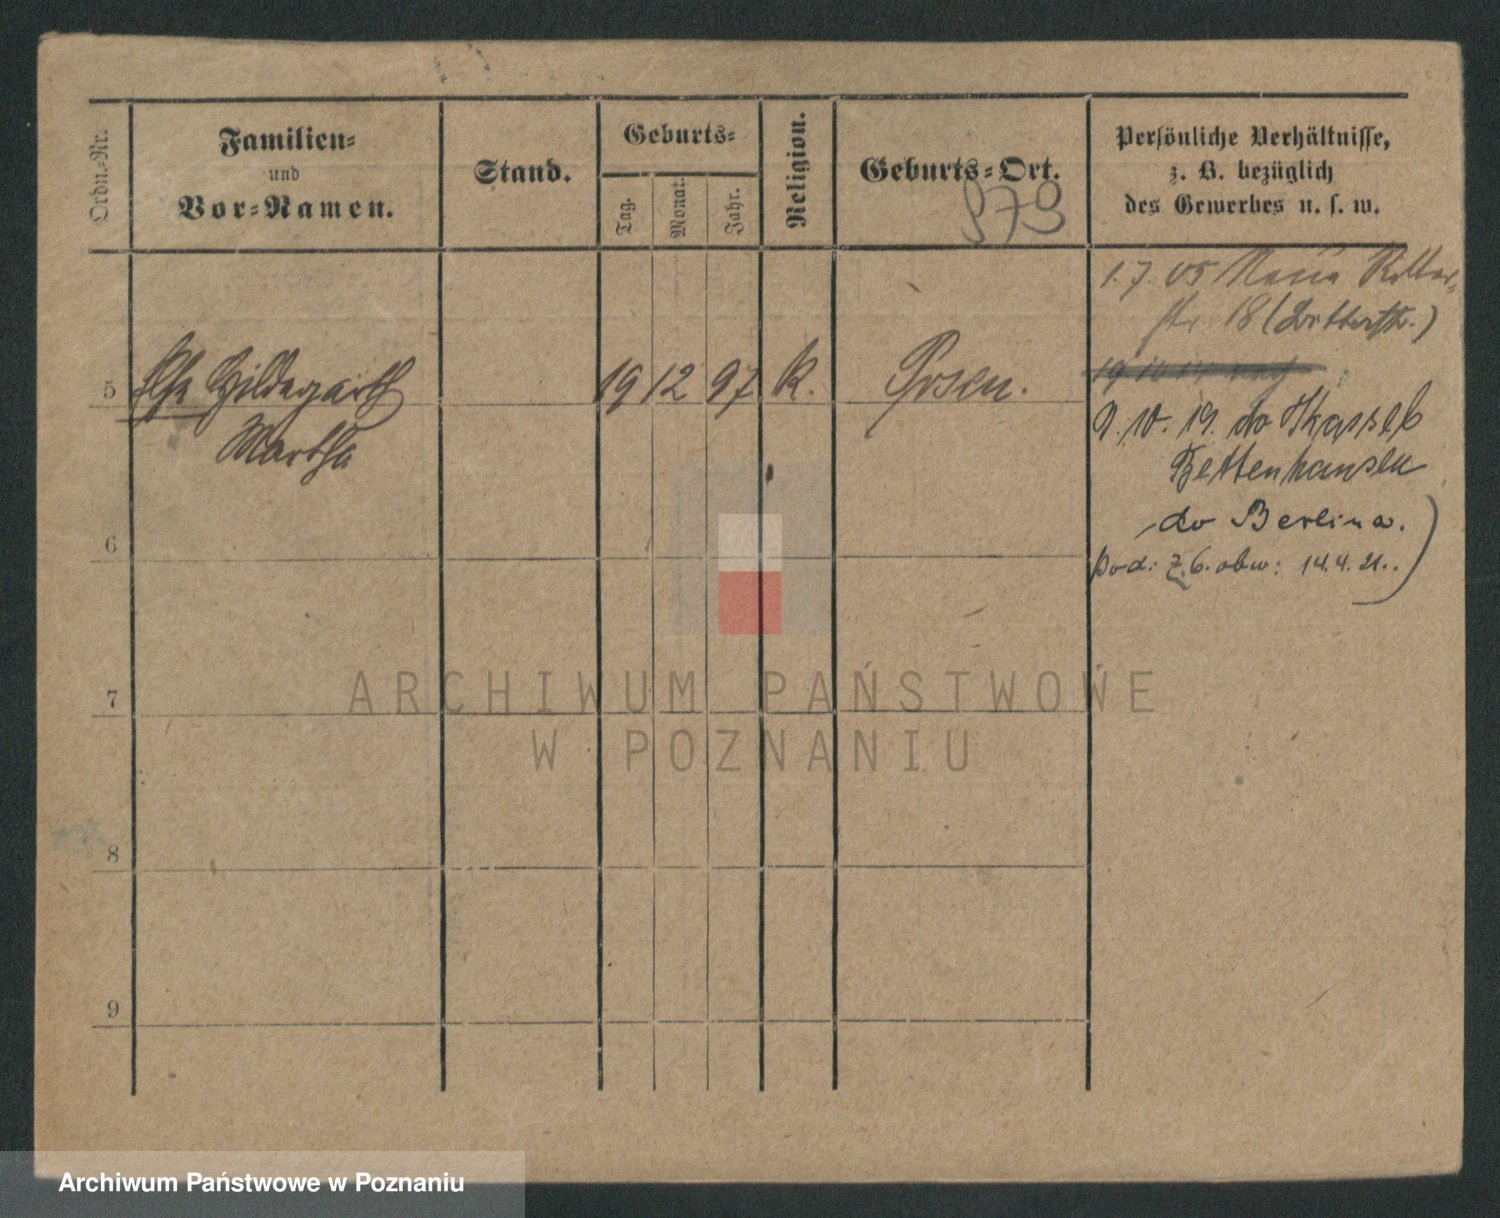 Ordn.-Nr.
Familien-
und
Vor-Namen.
Stand.
Geburts-
Tag.
Monat.
Jahr.
Religion.
Geburts-Ort.
979
Persönliche Verhältnisse,
z. B. bezüglich
des Gewerbes u. s. w.
1.7.05 Ritter-
str 18 (Ritterstr.)
5 Else Hildegarth 19 12 97 k. Posen.
Martha
19 10 14
9. 10. 19. do Kassel
Bettenhausen
do Berlina.
pod: Z. 6. obw: 14.4.21.
6
7
8
9
ARCHIWUM PAŃSTWOWE
W POZNANIU
Archiwum Państwowe w Poznaniu